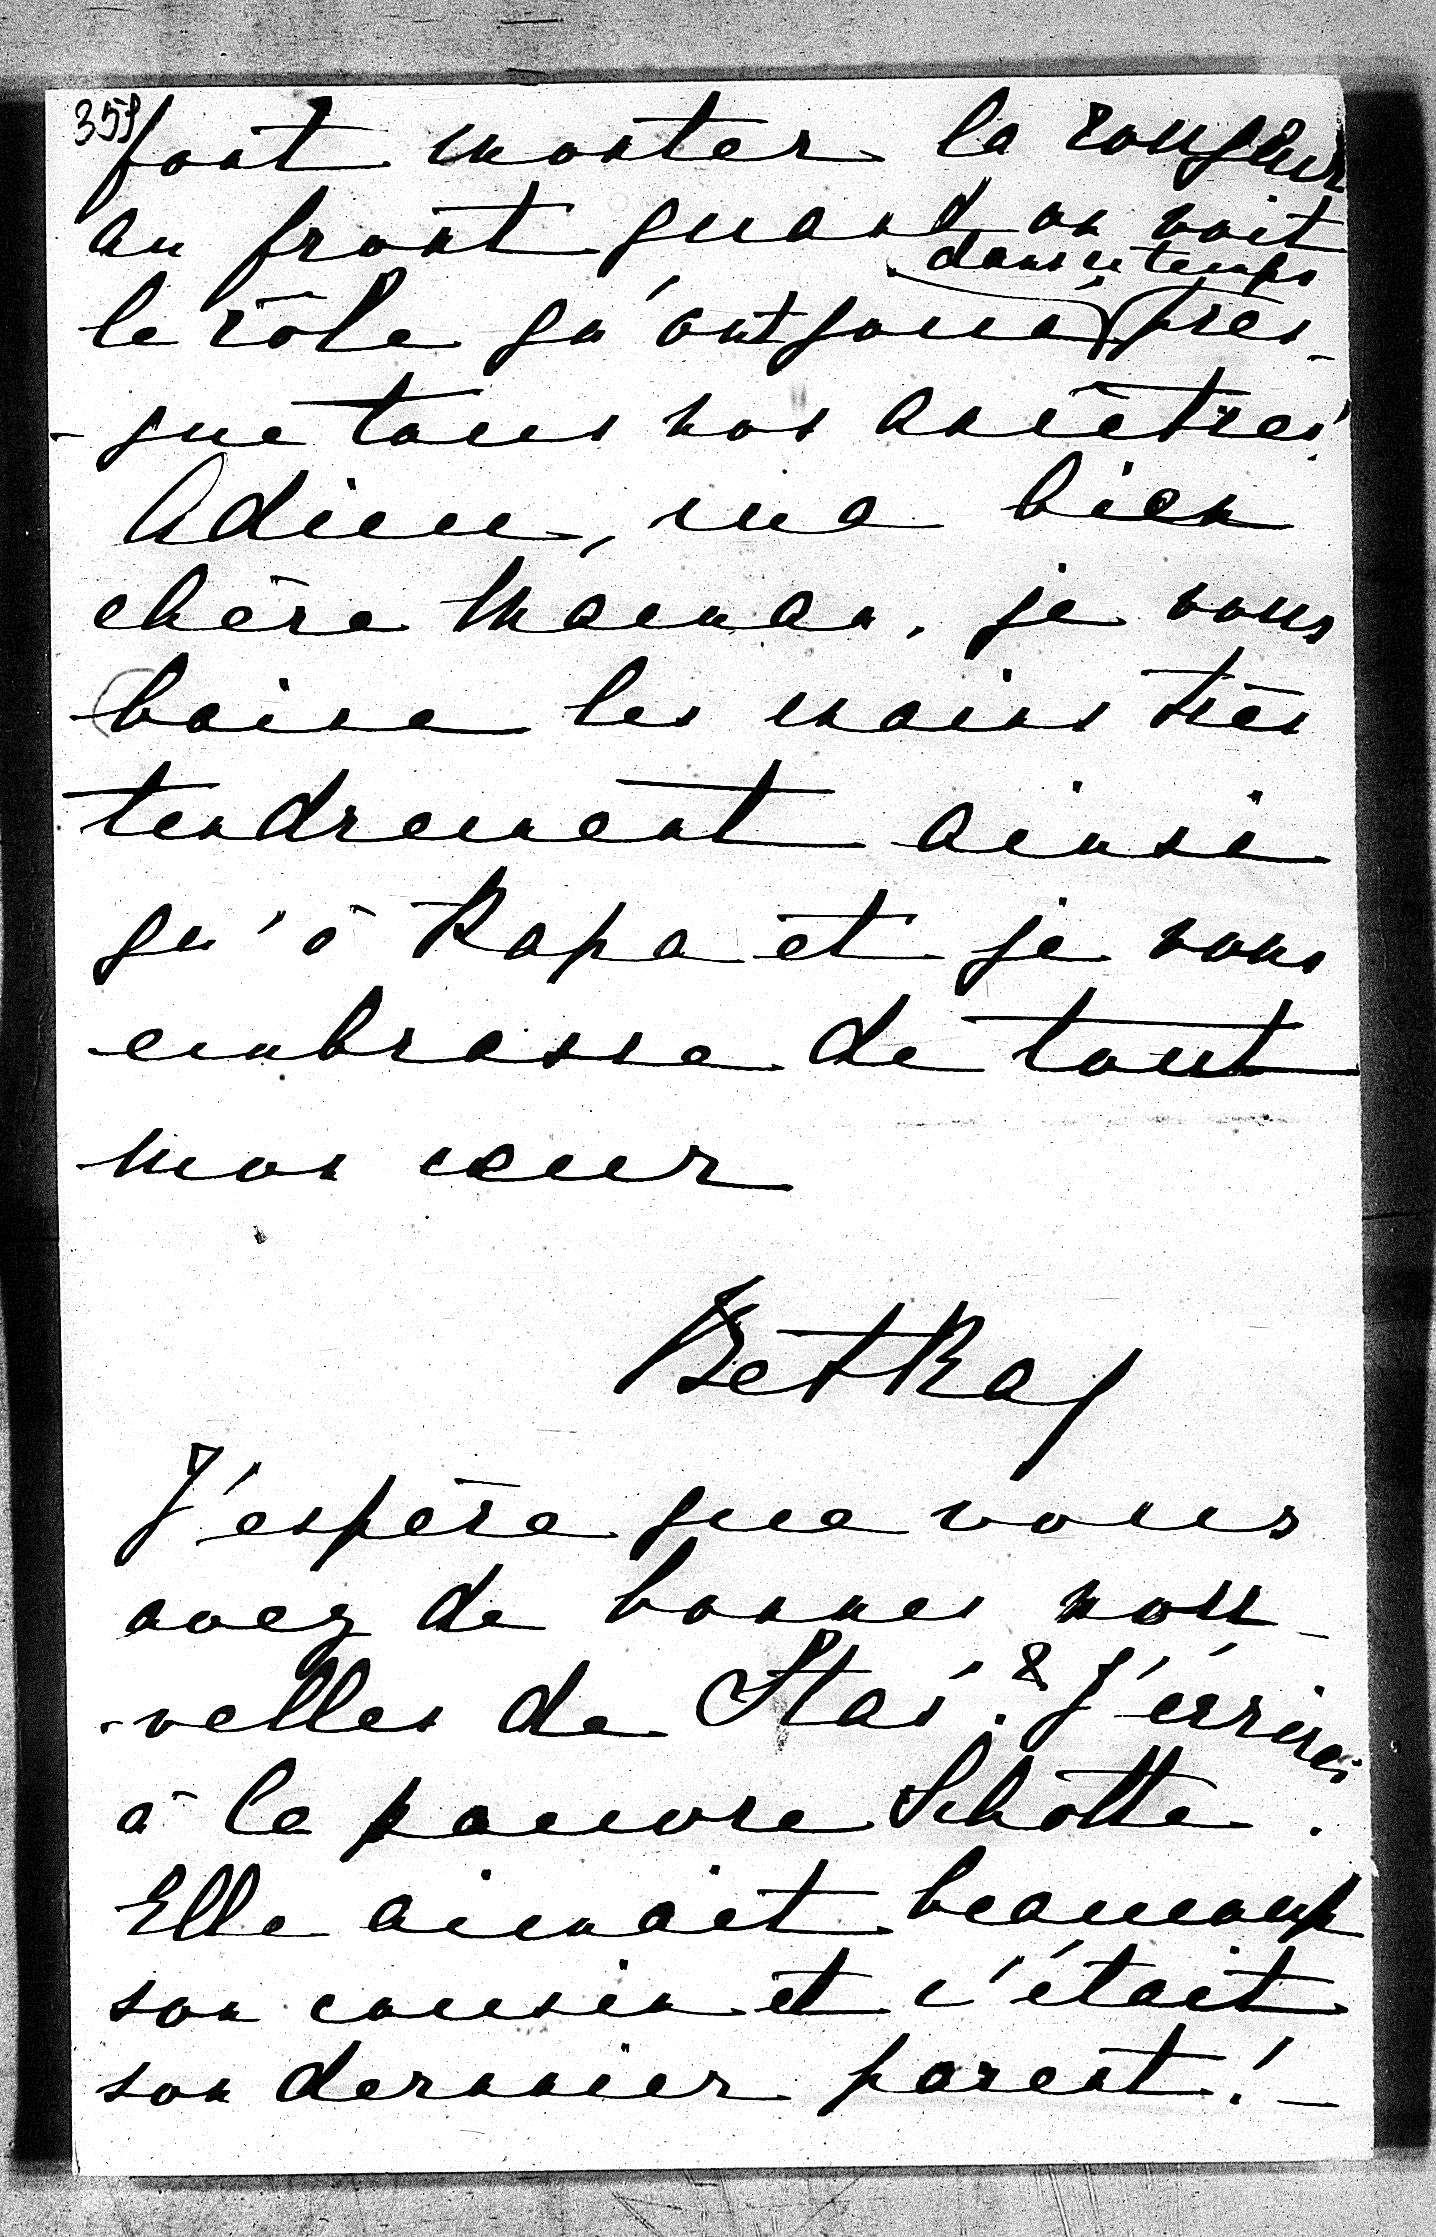 359
font monter la rougeur
au front quand on voit
dans ce temps
le rôle qu'ont joué pres-
-que tous nos ancêtres!
Adieu, ma bien
chère Maman, je vous
baise les mains très
tendrement ainsi
qu'à Papa et je vous
embrasse de tout
mon cœur
BetKa
J'espère que vous
avez de bonnes nou-
-velles de Staś? J'écrirai
à la pauvre Schotte.
Elle aimait beaucoup
son cousin et c'était
son dernier parent! –